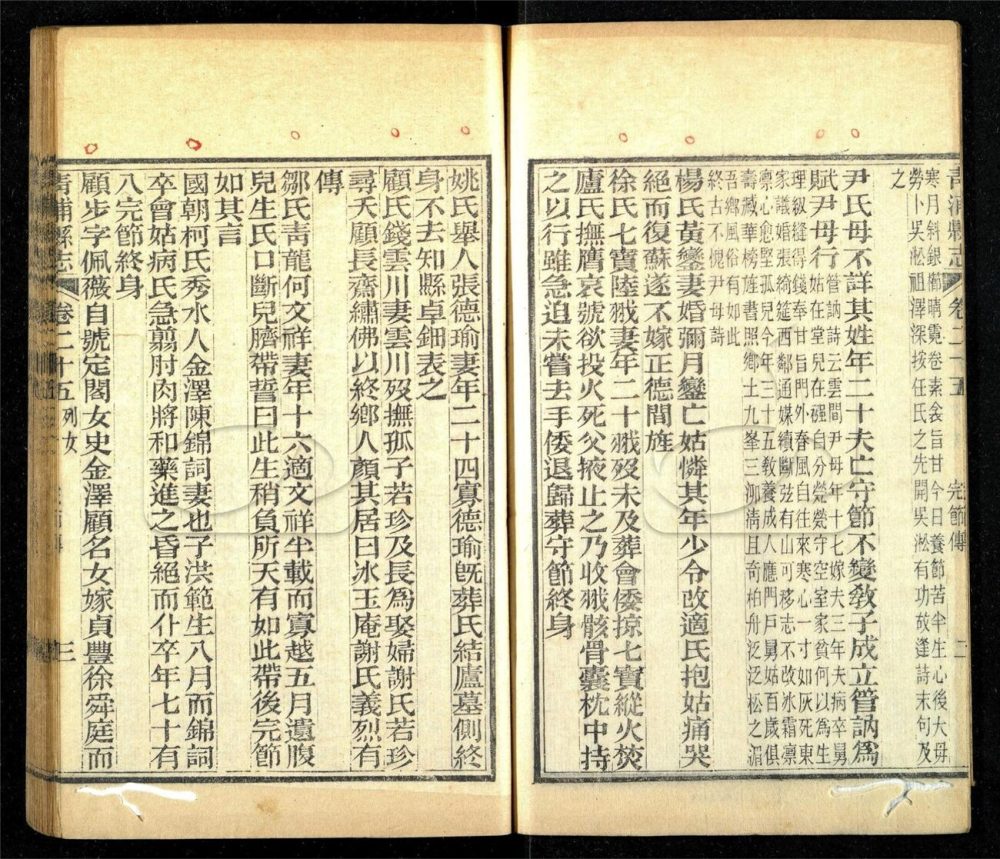 青浦縣志 卷二十五 完節傳 二
寒月斜銀櫛晴霓卷素衾旨甘今日養節苦半生心後大毋
勞卜吳淞祖澤深按任氏之先開吳淞有功故逢詩末句及
之
尹氏母不詳其姓年二十夫亡守節不變敎子成立管訥爲
賦尹母行管訥詩云雲間尹母年十七嫁夫三年夫病卒舅
姑在堂兒在襁自分煢煢守空室家貧何以為生
理級縫得錢奉甘旨門外春風自往來寒心一寸如灰死東
家議婚張綺筵西鄰通媒續斷弦有山可移志不改冰霜凛
凛心愈堅孤兒今年三十五敎養成人應門戸舅姑百歲俱
壽藏華榜旌書照鄉土九峯三泖淸且奇柏舟泛泛松之湄
吾鄉風俗有如此
終古不愧尹母詩
楊氏黃鑾妻婚彌月鑾亡姑憐其年少令改適氏抱姑痛哭
絕而復蘇遂不嫁正德間旌
徐氏七寶陸戩妻年二十戩歿未及葬會倭掠七寶縱火焚
廬氏撫膺哀號欲投火死父掖止之乃收戩骸骨囊枕中持
之以行雖急迫未嘗去手倭退歸葬守節終身
姚氏舉人張德瑜妻年二十四寡德瑜旣葬氏結廬墓側終
身不去知縣卓鈿表之
顧氏錢雲川妻雲川歿撫孤子若珍及長爲娶婦謝氏若珍
尋夭顧長齋繡佛以終鄉人顏其居曰冰玉庵謝氏義烈有
傳
鄒氏靑龍何文祥妻年十六適文祥半載而寡越五月遺腹
兒生氏口斷兒臍帶誓曰此生稍負所天有如此帶後完節
如其言
國朝柯氏秀水人金澤陳錦詞妻也子洪範生八月而錦詞
卒會姑病氏急剪肘肉將和藥進之昏絕而仆卒年七十有
八完節終身
顧步字佩薇自號定閣女史金澤顧名女嫁貞豐徐舜庭而
青浦縣志 卷二十五 列女 三